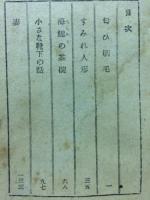 目次
匂ひ刷毛 一
すみれ人形 三五
海鰻の茶碗 六八
小さな靴下の話 九七
妻 一三三